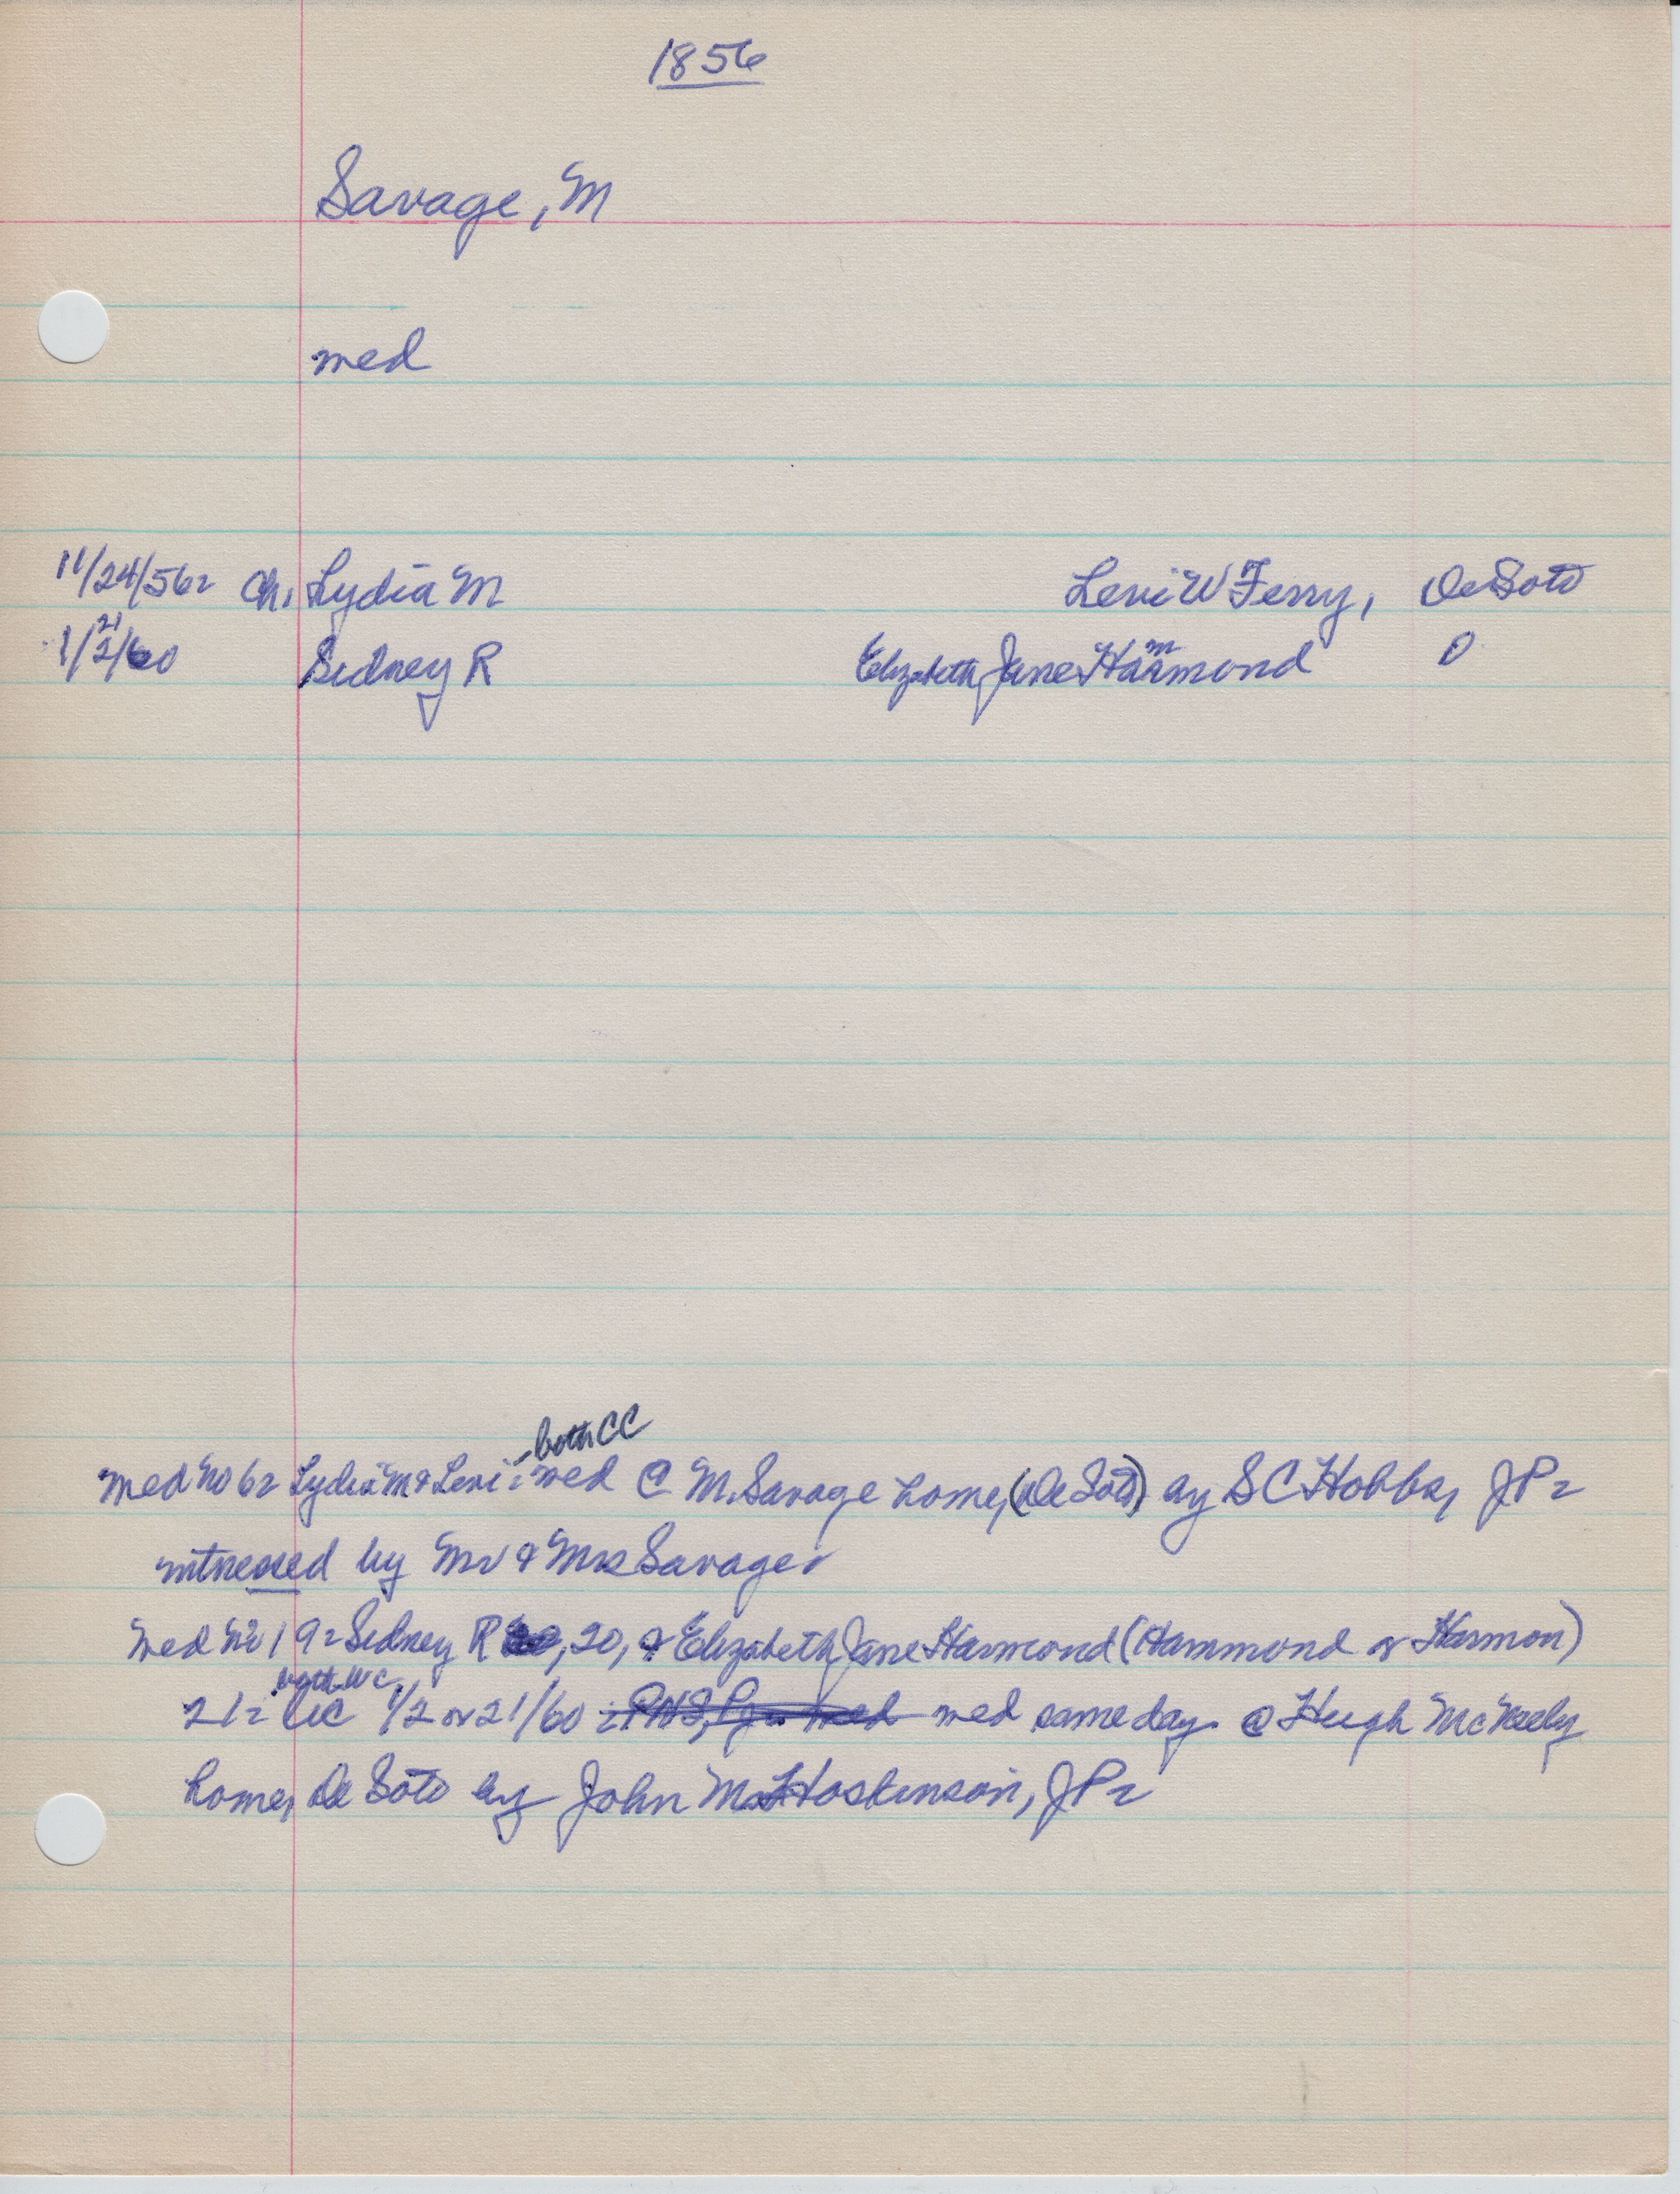 1856
Savage, M
med
11/24/56 Ch. Lydia M Levi W Ferry, DeSoto
21
1/2/60 Sidney R Elizabeth Jane Harmond D
m
- both CC
med No 6 Lydia M & Levi med @ M. Savage home, (De Soto) by S C Hobbs, JP
witnessed by Mr & Mrs Savage
med No 19 Sidney R , 20, & Elizabeth Jane Harmond (Hammond or Harmon)
both WC
21 lic 1/2 or 21/60 med same day @ Hugh McNeely
home, De Soto by John M Hoskinson, JP